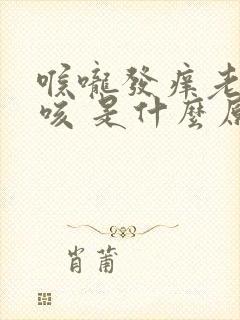 喉嚨發癢老
咳 是什麼原
肖莆